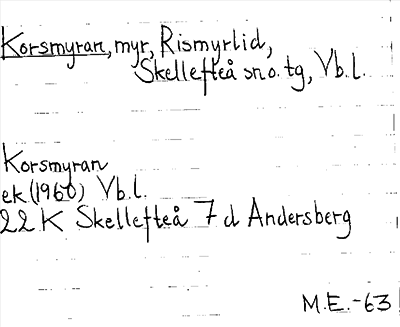 Korsmyran, myr, Rismyrlid,
Skellefteå sn.o.tg, Vb.l.
Korsmyran
ek (1960) Vb.l.
22 K Skellefteå 7 d Andersberg
M.E.-63